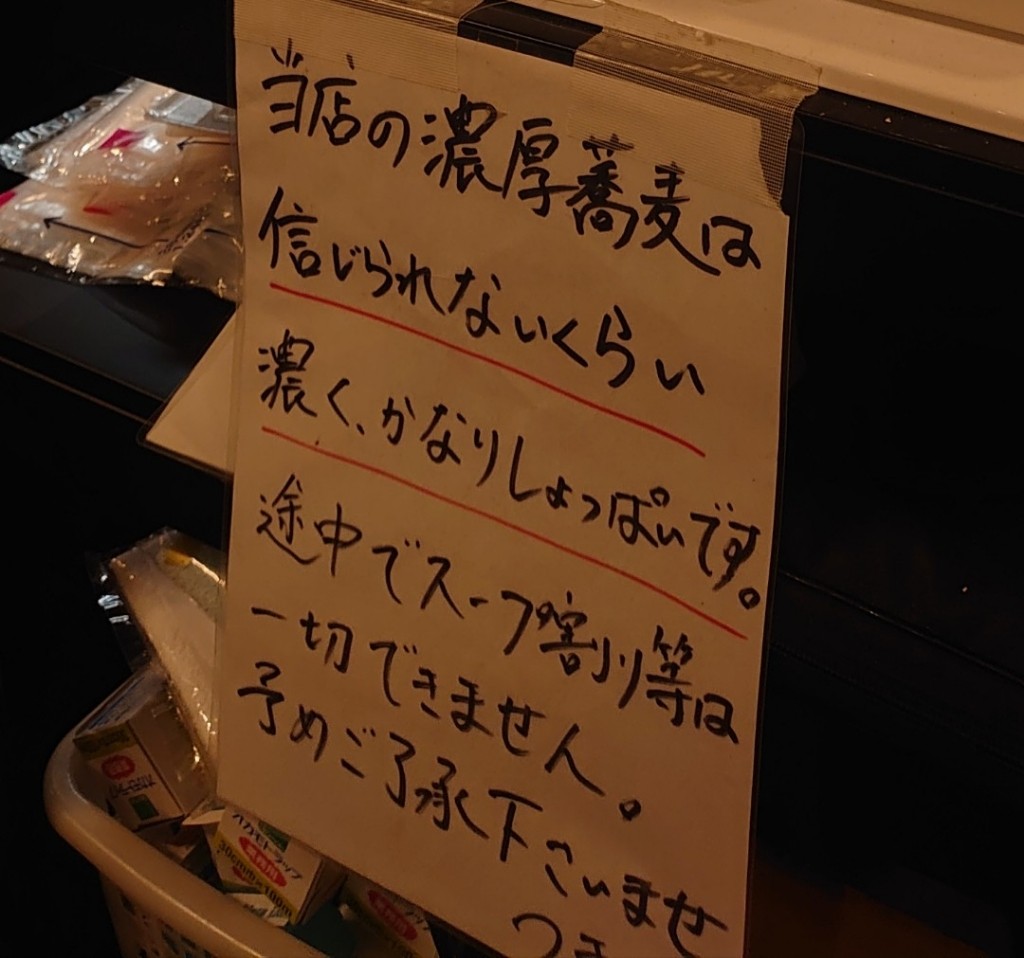 当店の濃厚蕎麦は
信じられないくらい
濃く、かなりしょっぱいです。
途中でスープ割り等は
一切できません。
予めご了承下さいませ
オカモトラップ
業務用
30cm×100m